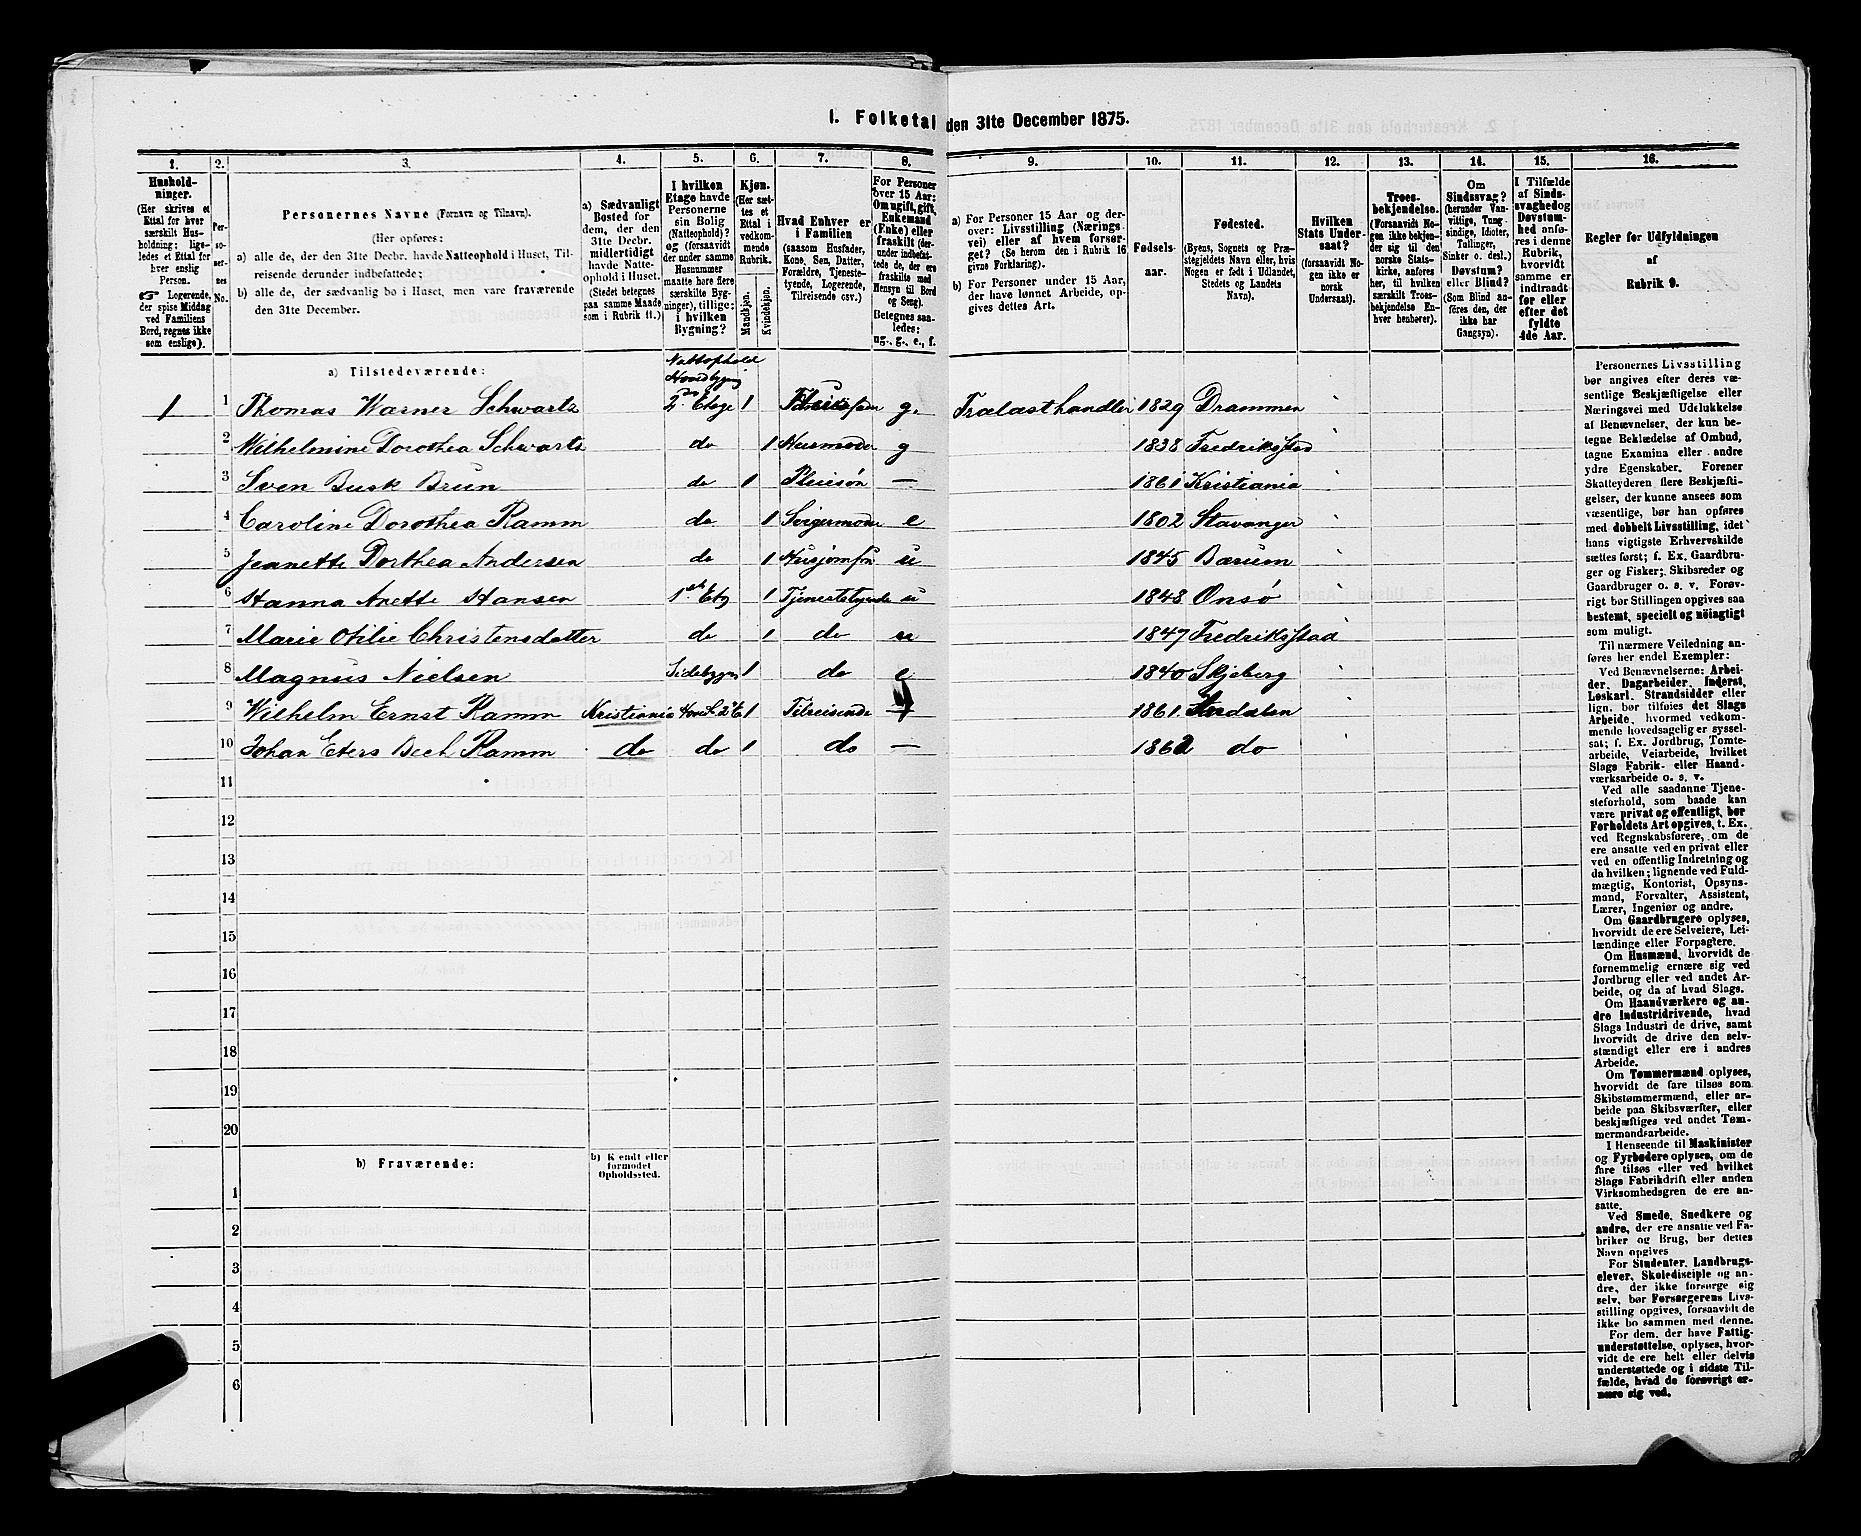 I. Folketal den 31te December 1875.
1.
Hushold-
ninger.
(Her skrives et
Ettal for hver
særskilt Hus-
holdning; lige-
ledes et Ettal for
hver enslig
Person.
Logerende,
der spise Middag
ved Familiens
Bord, regnes ikke
som enslige).
2.
Per-
so-
ner-
nes
No.
3.
Personernes Navne (Fornavn og Tilnavn).
(Her opføres:
a) alle de, der den 31te Decbr. havde Natteophold i Huset, Til-
reisende derunder indbefattede;
b) alle de, der sædvanlig bo i Huset, men vare fraværende
den 31te December.
4.
a) Sædvanligt
Bosted for
dem, der den
31te Decbr.
midlertidigt
havde Natte-
ophold i Huset.
(Stedet betegnes
paa samme Maade
som i Rubrik 11.)
5.
I hvilken
Etage havde
Personerne
sin Bolig
(Natteophold)?
og (forsaavidt
der under samme
Husnummer
maatte høre flere
særskilte Byg-
ninger), tillige:
i hvilken
Bygning?
6.
Kjøn.
(Her sæt-
tes et
Ettal i
vedkom-
mende
Rubrik.
Mandkjøn.
Kvindekjøn.
7.
Hvad Enhver er
i Familien
(saasom Husfader,
Kone, Søn, Datter,
Forældre, Tjeneste-
tyende, Logerende,
Tilreisende osv.)
8.
For Personer
over 15 Aar:
Om ugift, gift,
Enkemand
(Enke) eller
fraskilt (der-
under indbefat-
tede de, der ere
fraskilte med
Hensyn til Bord
og Seng).
Betegnes saa-
ledes:
ug., g., e., f.
9.
a) For Personer 15 Aar og der-
over: Livsstilling (Nærings-
vei) eller af hvem forsør-
get? (Se herom den i Rubrik 16
givne Forklaring).
b) For Personer under 15 Aar,
der have lønnet Arbeide, op-
gives dettes Art.
10.
Fødsels-
aar.
11.
Fødested.
(Byens, Sognets og Præ-
stegjeldets Navn eller, hvis
Nogen er født i Udlandet,
Stedets og Landets
Navn).
12.
Hvilken
Stats Under-
saat?
(forsaavidt No-
gen ikke er
norsk
Undersaat).
13.
Troes-
bekjendelse.
(Forsaavidt No-
gen ikke bekjen-
der sig til den
norske Stats-
kirke, anføres
her, til hvilken
særskilt Troes-
bekjendelse En-
hver henhører).
14.
Om
Sindssvag?
(herunder Van-
vittige, Tung-
sindige, Idioter,
Tullinger,
Sinker o. desl.)
Døvstum?
eller Blind?
(Som Blind an-
føres den, der
ikke har
Gangsyn).
15.
I Tilfælde
af Sinds-
svaghed og
Døvstum-
hed anfø-
res i denne
Rubrik,
hvorvidt
samme er
indtraadt
før eller
efter det
fyldte
4de Aar.
16.
Regler for Udfyldningen
af
Rubrik 9.
a) Tilstedeværende:
Natteophold
Hovedbygning
1 1 Thomas Warner Schwartz 2den Etage 1 g. Trælasthandler 1829 Drammen
2 Wilhelmine Dorothea Schwartz do 1 Husmoder g 1838 Fredriksstad
3 Sven Busk Brun do 1 Pleiesøn — 1861 Kristiania
4 Caroline Dorothea Ramm do 1 Svigermoder e 1802 Stavanger
5 Jeanette Dorthea Andersen do 1 Husjomfru u 1845 Bærum
6 Hanna Anette Hansen 1ste Etg 1 Tjenestetyende u 1848 Onsø
7 Marie Otilie Christensdatter do 1 do u 1847 Fredriksstad
8 Magnus Nielsen Sidebygn 1 do e 1840 Skjeberg
9 Wilhelm Ernst Ramm Kristiania Hoved 2 E 1 Tilreisende 1861
10 Johan Bech Ramm do do 1 do — 1862 do
11
12
13
14
15
16
17
18
19
20
b) Fraværende:
b) Kjendt eller
formodet
Opholdssted.
1
2
3
4
5
6
Personernes Livsstilling
bør angives efter deres væ-
sentlige Beskjæftigelse eller
Næringsvei med Udelukkelse
af Benævnelser, der kun be-
tegne Beklædelse af Ombud,
tagne Examina eller andre
ydre Egenskaber. Forener
Skatteyderen flere Beskjæfti-
gelser, der kunne ansees som
væsentlige, bør han opføres
med dobbelt Livsstilling, idet
hans vigtigste Erhvervskilde
sættes først; f. Ex. Gaardbru-
ger og Fisker; Skibsreder og
Gaardbruger o. s. v. Forøv-
rigt bør Stillingen opgives saa
bestemt, specielt og nøiagtigt
som muligt.
Til nærmere Veiledning an-
føres her endel Exempler:
Ved Benævnelserne: Arbei-
der, Dagarbeider, Inderst,
Løskarl, Strandsidder eller
lign. bør tilføies det Slags
Arbeide, hvormed vedkom-
mende hovedsagelig er syssel-
sat; f. Ex. Jordbrug, Tomte-
arbeide, Veiarbeide, hvilket
Slags Fabrik- eller Haand-
værksarbeide o. s. v.
Ved alle saadanne Tjene-
steforhold, som baade kan
være privat og offentligt, bør
Forholdets Art opgives, t. Ex.
ved Regnskabsførere, om de
ere ansatte ved en privat eller
ved en offentlig Indretning og
da hvilken; lignende ved Fuld-
mægtig, Kontorist, Opsyns-
mand, Forvalter, Assistent,
Lærer, Ingeniør og andre.
Om Gaardbrugere oplyses,
hvorvidt de ere Selveiere, Lei-
lændinge eller Forpagtere.
Om Husmænd, hvorvidt de
fornemmelig ernære sig ved
Jordbrug eller ved andet Ar-
beide, og da af hvad Slags.
Om Haandværkere og an-
dre Industridrivende, hvad
Slags Industri de drive, samt
hvorvidt de drive den selv-
stændigt eller ere i andres
Arbeide.
Om Tømmermænd oplyses,
hvorvidt de fare tilsøs som
Skibstømmermænd, eller ar-
beide paa Skibsværfter, eller
beskjæftiges ved andet Tøm-
mermandsarbeide.
I Henseende til Maskinister
og Fyrbødere oplyses, om de
fare tilsøs eller ved hvilket
Slags Fabrikdrift eller anden
Virksomhedsgren de ere an-
satte.
Ved Smede, Snedkere og
andre, der ere ansatte ved Fa-
briker og Brug, bør dettes
Navn opgives
For Studenter, Landbrugs-
elever, Skoledisciple og an-
dre, der ikke forsørge sig
selv, bør Forsørgerens Livs-
stilling opgives, forsaavidt de
ikke bo sammen med denne.
For dem, der have Fattig-
understøttelse, oplyses, hvor-
vidt de ere helt eller delvis
understøttede og i sidste Til-
fælde, hvad de forøvrigt er-
nære sig ved.